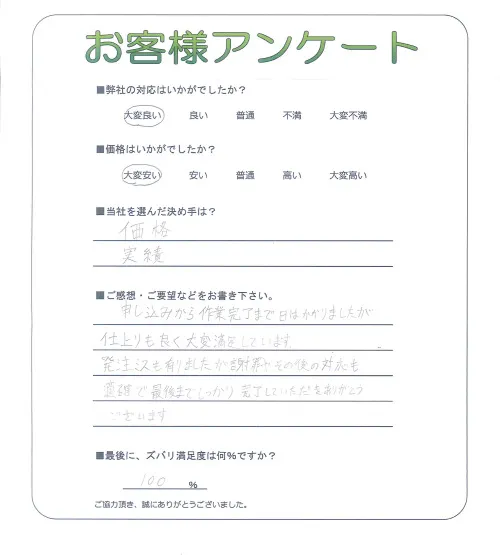 お客様アンケート
■弊社の対応はいかがでしたか？
大変良い 良い 普通 不満 大変不満
■価格はいかがでしたか？
大変安い 安い 普通 高い 大変高い
■当社を選んだ決め手は？
価格
実績
■ご感想・ご要望などをお書き下さい。
申し込みから作業完了まで日はかかりましたが
仕上りも良く大変満足しています。
発注ミスも有りましたが謝罪やその後の対応も
で最後までしっかり完了していただきありがとう
ございます。
■最後に、ズバリ満足度は何％ですか？
100 %
ご協力頂き、誠にありがとうございました。